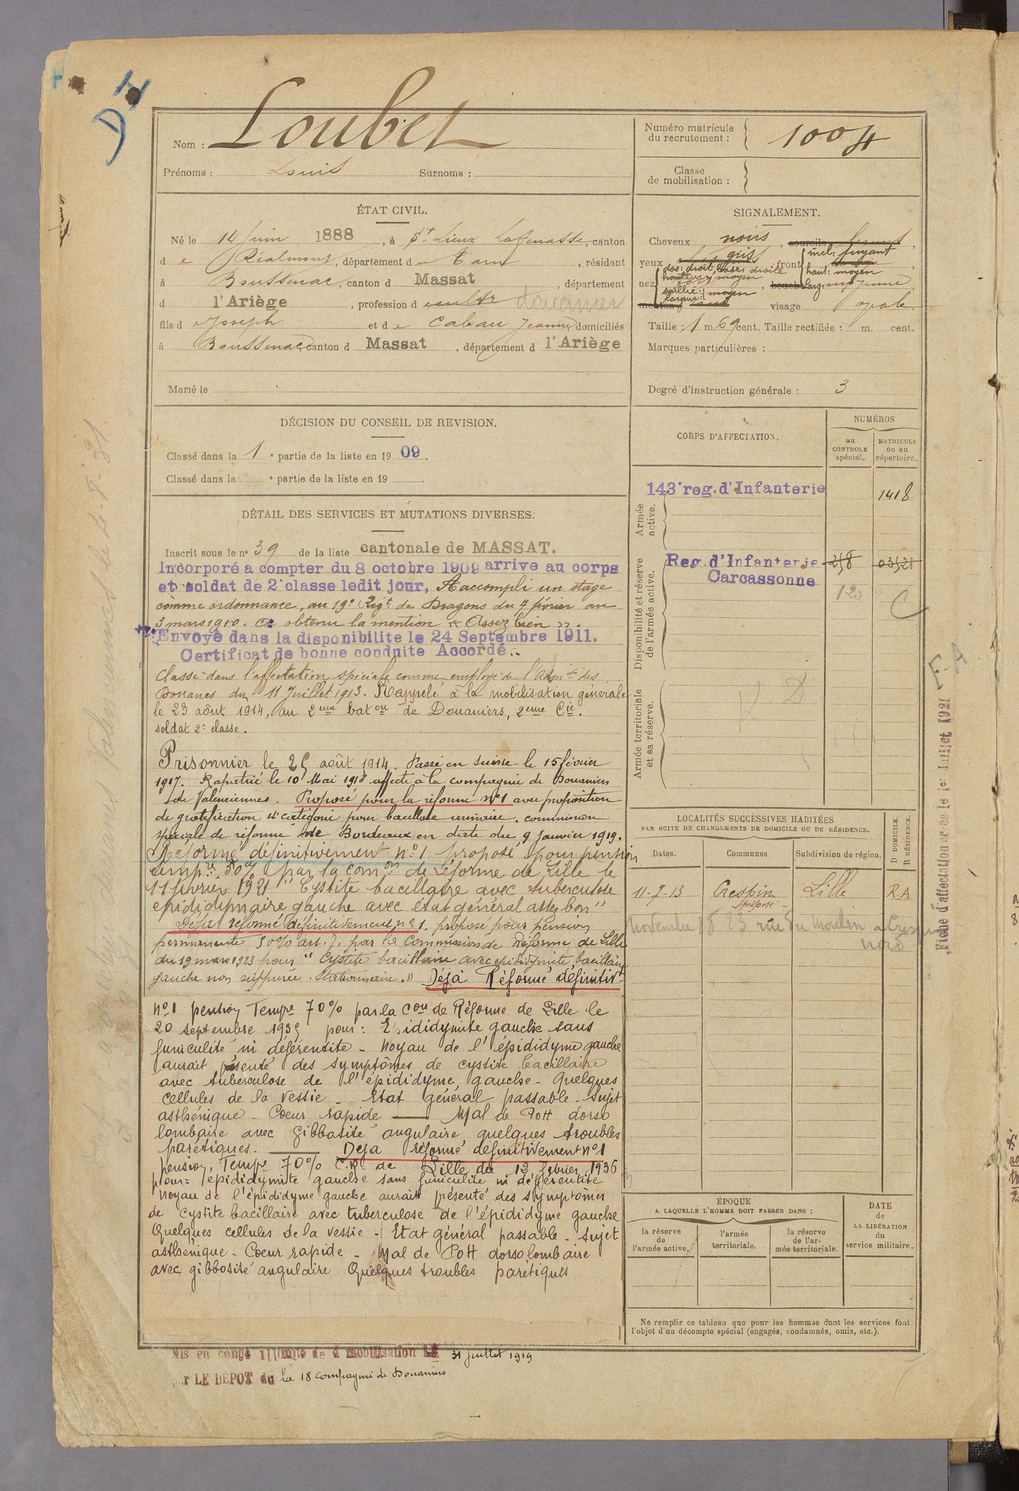 Nom : Loubet
Prénoms : Louis Surnoms :
Numéro matricule du recrutement : 1004
Classe de mobilisation :
ÉTAT CIVIL.
Né le 14 juin 1888, à St Lieux Lafenasse, canton
de Réalmont, département du Tarn, résidant
à Boussenac, canton d Massat, département
d l'Ariège, profession de cultr douanier
fils de Joseph et de Cabau Jeanne domiciliés
à Boussenac canton d Massat, département d l'Ariège
Marié le
SIGNALEMENT.
Cheveux noirs, sourcils
yeux gris front incl: fuyant
haut: moyen
larg: moyenne
nez dos: droit, base: droite
hauteur: moyen
saillie: moyen
largeur:
visage ovale
Taille : 1 m. 69 cent. Taille rectifiée : m. cent.
Marques particulières :
Degré d'instruction générale : 3
DÉCISION DU CONSEIL DE REVISION.
Classé dans la 1e partie de la liste en 1909.
Classé dans la e partie de la liste en 19
DÉTAIL DES SERVICES ET MUTATIONS DIVERSES.
Inscrit sous le n° 39 de la liste cantonale de MASSAT.
Incorporé a compter du 8 octobre 1909 arrive au corps
et soldat de 2e classe ledit jour, A accompli un stage
comme ordonnance, au 19e Régt de Dragons du 7 février au
3 mars 1910. a obtenu la mention « Assez bien ».
Envoyé dans la disponibilite le 24 Septembre 1911.
Certificat de bonne conduite Accordé.
Classé dans l'affectation spéciale comme employé de l'Admon des
Douanes du 11 Juillet 1913. Rappelé à la mobilisation générale
le 23 août 1914, au 2eme baton de Douaniers, 2eme Cie.
soldat 2e classe.
Prisonnier le 25 août 1914. Passé en Suisse le 15 février
1917. Rapatrié le 10 Mai 1918 affecté à la compagnie de Douaniers
de Valenciennes. Proposé pour la réforme n°1 avec proposition
de gratification 4e catégorie pour bacillose urinaire. commission
spéciale de réforme de Bordeaux en date du 9 Janvier 1919.
Réformé définitivement n°1 proposé pour pension
tempre 50% par la comon de réforme de Lille le
11 février 1921 "Cystite bacillaire avec tuberculose
epididymaire gauche avec état général assez bon"
Déjà réformé définitivement n°1. proposé pour pension
permanente 50% art. 7. par la Commission de Réforme de Lille
du 19 mars 1923 pour "Cystite bacillaire avec epididymite bacillaire
gauche non suppurée. Stationnaire." Déjà Réformé définitivt
n°1 pension Tempre 70% par la Con de Réforme de Lille le
20 septembre 1935 pour : Epididymite gauche sans
funiculite ni déférentite - Noyau de l'épididyme gauche
aurait présenté des symptômes de cystite bacillaire
avec tuberculose de l'épididyme gauche - Quelques
cellules de la vessie - Etat général passable - Sujet
asthénique - Coeur rapide - Mal de Pott dorso
lombaire avec gibbosité angulaire quelques troubles
parétiques. - Déjà réformé définitivement n°1
pension Tempre 70% C.R. de Lille du 12 février 1936
pour : épididymite gauche sans funiculite ni déférentite
Noyau de l'épididyme gauche aurait présenté des symptômes
de cystite bacillaire avec tuberculose de l'épididyme gauche
Quelques cellules de la vessie - Etat général passable - Sujet
asthénique - Coeur rapide - Mal de Pott dorsolombaire
avec gibbosité angulaire Quelques troubles parétiques
Mis en congé illimité de démobilisation le 31 juillet 1919
LE DEPOT du la 18 compagnie de Douaniers
CORPS D'AFFECTATION.
NUMÉROS
au CONTROLE spécial.
MATRICULE ou au répertoire.
Armée active.
143e reg. d'Infanterie 1418
Disponibilité et réserve de l'armée active.
Reg. d'Infanterie 258 03521
Carcassonne
120
Armée territoriale et sa réserve.
LOCALITÉS SUCCESSIVES HABITÉES
PAR SUITE DE CHANGEMENTS DE DOMICILE OU DE RÉSIDENCE.
Dates. Communes Subdivision de région. D DOMICILE. R RÉSIDENCE.
11-7-13 Crespin Lille RA
ÉPOQUE
A LAQUELLE L'HOMME DOIT PASSER DANS :
la réserve de l'armée active.
l'armée territoriale.
la réserve de l'armée territoriale.
DATE de LA LIBÉRATION du service militaire.
Ne remplir ce tableau que pour les hommes dont les services font
l'objet d'un décompte spécial (engagés, condamnés, omis, etc.).
Fiche d'affectation le 1er Juillet 1921